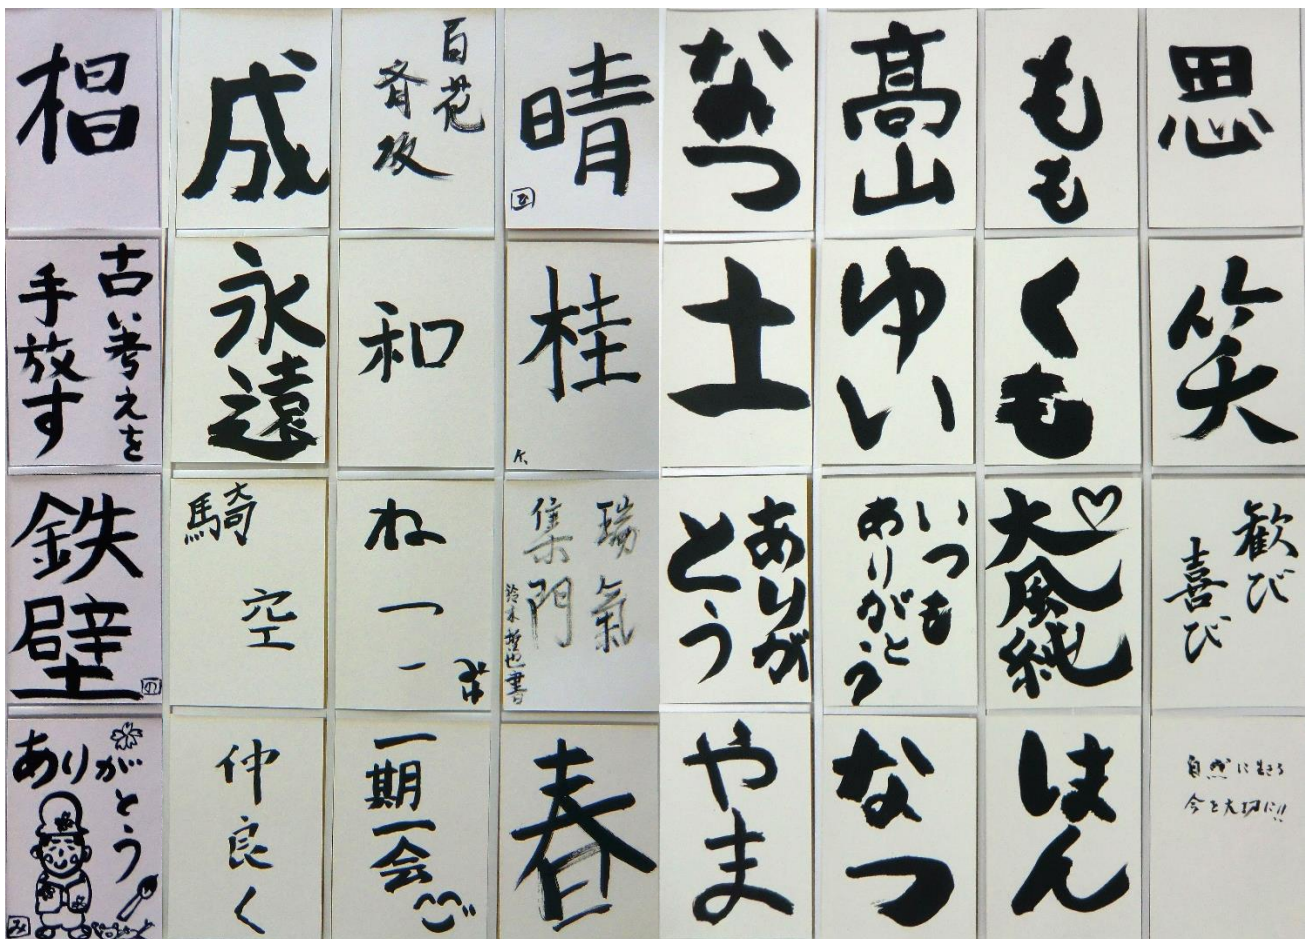 椙
成
百花
斉放
晴
ひ
なつ
髙山
もも
思
古い考えを
手放す
永遠
和
桂
土
ゆい
くも
笑
鉄壁
の
騎
空
ねー
瑞氣
集門
鈴木哲也書
ありが
とう
いつも
ありがとう
大風純
歓び
喜び
ありがとう
み
仲良く
一期一会
春
やま
なつ
はん
自然に生きろ
今を大切に!!